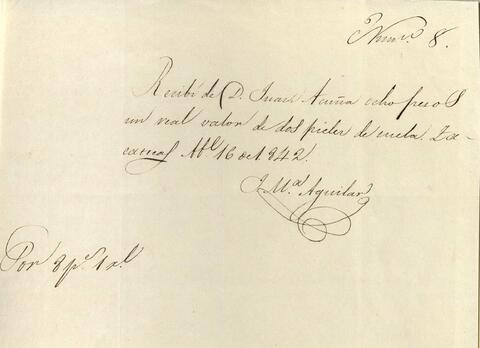 Num.o 8.
Recibí de D. Juan Acuña ocho pesos
un real valor de dos pieles de meta. Za-
catecas Ab.l 16 de 1842.
J. M.a Aguilar
Por 8 p.s 1 r.l